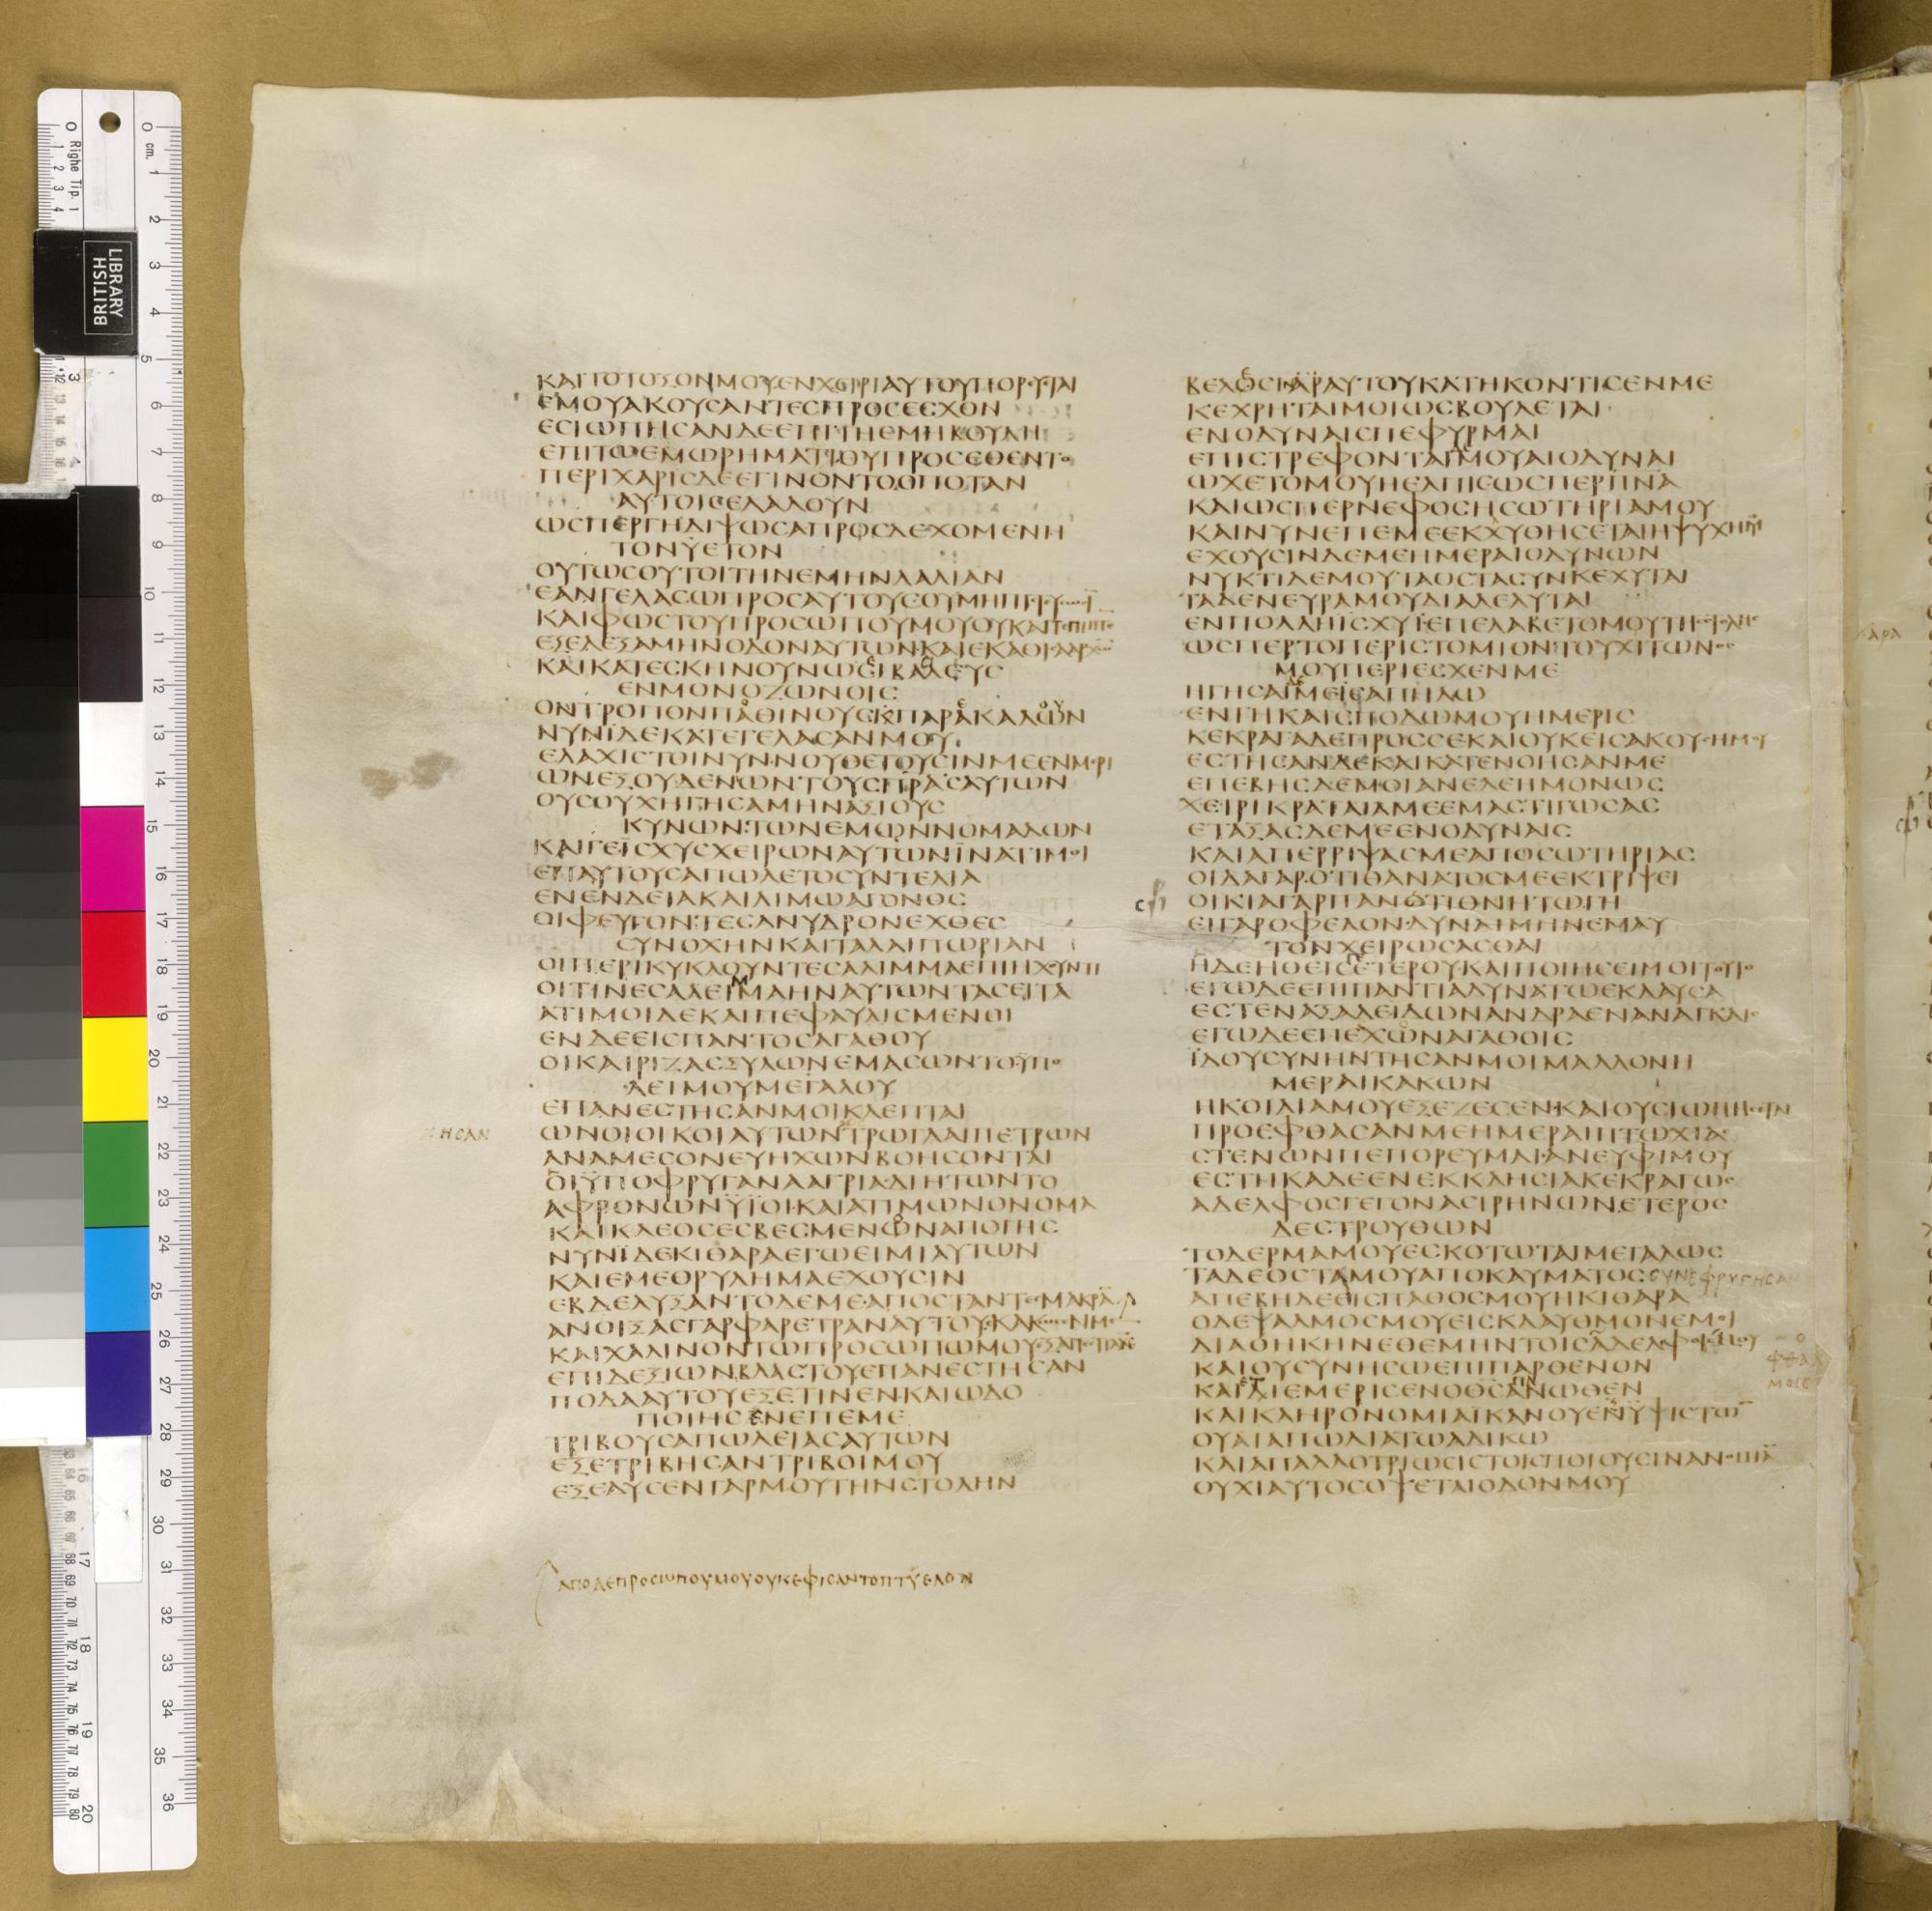 ΚΑΙΤΟΤΟΞΟΝΜΟΥΕΝΧΕΙΡΙΑΥΤΟΥΠΟΡΕΥΕΤΑΙ
ΕΜΟΥΑΚΟΥCΑΝΤΕCΠΡΟCΕCΧΟΝ
ΕCΙΩΠΗCΑΝΔΕΕΠΙΤΗΕΜΗΒΟΥΛΗ
ΕΠΙΤΩΕΜΩΡΗΜΑΤΙΟΥΠΡΟCΕΘΕΝΤΟ
ΠΕΡΙΧΑΡΙCΔΕΕΓΙΝΟΝΤΟΟΠΟΤΑΝ
ΑΥΤΟΙCΕΛΑΛΟΥΝ
ΩCΠΕΡΓΗΔΙΨΩCΑΠΡΟCΔΕΧΟΜΕΝΗ
ΤΟΝΫΕΤΟΝ
ΟΥΤΩCΟΥΤΟΙΤΗΝΕΜΗΝΛΑΛΙΑΝ
ΕΑΝΓΕΛΑCΩΠΡΟCΑΥΤΟΥCΟΥΜΗ
ΚΑΙΦΩCΤΟΥΠΡΟCΩΠΟΥΜΟΥΟΥΚΑΠΕΠΙΠΤΕ
ΕΞΕΛΕΞΑΜΗΝΟΔΟΝΑΥΤΩΝΚΑΙΕΚΑΘΙCΑΑΡΧΩ
ΚΑΙΚΑΤΕCΚΗΝΟΥΝΩCΙΒΑCΙΛΕΥC
ΕΝΜΟΝΟΖΩΝΟΙC
ΟΝΤΡΟΠΟΝΠΑΘΙΝΟΥCΠΑΡΑΚΑΛΩΝ
ΝΥΝΙΔΕΚΑΤΕΓΕΛΑCΑΝΜΟΥ
ΕΛΑΧΙCΤΟΙΝΥΝΝΟΥΘΕΤΟΥCΙΝΜΕΕΝΜΕΡΙ
ΩΝΕΞΟΥΔΕΝΩΝΤΟΥCΠΡΑCΑΥΤΩΝ
ΟΥCΟΥΧΗΓΗCΑΜΗΝΑΞΙΟΥC
ΚΥΝΩΝΤΩΝΕΜΩΝΝΟΜΑΔΩΝ
ΚΑΙΓΕΙCΧΥCΧΕΙΡΩΝΑΥΤΩΝΙΝΑΤΙΜΟΙ
ΕΠΑΥΤΟΥCΑΠΩΛΕΤΟCΥΝΤΕΛΙΑ
ΕΝΕΝΔΕΙΑΚΑΙΛΙΜΩΑΓΟΝΟC
ΟΙΦΕΥΓΟΝΤΕCΑΝΥΔΡΟΝΕΧΘΕC
CΥΝΟΧΗΝΚΑΙΤΑΛΑΙΠΩΡΙΑΝ
ΟΙΠΕΡΙΚΥΚΛΟΥΝΤΕCΑΛΙΜΜΑΕΠΙΗΧΟΥΝΤΙ
ΟΙΤΙΝΕCΑΛΕΙΜΑΗΝΑΥΤΩΝΤΑCΕΙΤΑ
ΑΤΙΜΟΙΔΕΚΑΙΠΕΦΑΥΛΙCΜΕΝΟΙ
ΕΝΔΕΕΙCΠΑΝΤΟCΑΓΑΘΟΥ
ΟΙΚΑΙΡΙΖΑCΞΥΛΩΝΕΜΑCΩΝΤΟΫΠΟ
ΛΕΙΜΟΥΜΕΓΑΛΟΥ
ΕΠΑΝΕCΤΗCΑΝΜΟΙΚΛΕΠΤΑΙ
ΩΝΟΙΟΙΚΟΙΑΥΤΩΝΤΡΩΓΛΑΙΠΕΤΡΩΝ
ΑΝΑΜΕCΟΝΕΥΗΧΩΝΒΟΗCΟΝΤΑΙ
ΟΙΫΠΟΦΡΥΓΑΝΑΑΓΡΙΑΔΙΗΤΩΝΤΟ
ΑΦΡΟΝΩΝΫΪΟΙΚΑΙΑΤΙΜΩΝΟΝΟΜΑ
ΚΑΙΚΛΕΟCΕCΒΕCΜΕΝΟΝΑΠΟΓΗC
ΝΥΝΙΔΕΚΙΘΑΡΑΕΓΩΕΙΜΙΑΥΤΩΝ
ΚΑΙΕΜΕΘΡΥΛΗΜΑΕΧΟΥCΙΝ
ΕΒΔΕΛΥΞΑΝΤΟΔΕΜΕΑΠΟCΤΑΝΤΕCΜΑΚΡΑΝ
ΑΝΟΙΞΑCΓΑΡΦΑΡΕΤΡΑΝΑΥΤΟΥΕΚΑΚΩCΕΝΜΕ
ΚΑΙΧΑΛΙΝΟΝΤΩΠΡΟCΩΠΩΜΟΥΕΞΑΠΕCΤΙΛΑΝ
ΕΠΙΔΕΞΙΩΝΒΛΑCΤΟΥΕΠΑΝΕCΤΗCΑΝ
ΠΟΔΑΑΥΤΟΥΕΞΕΤΙΝΕΝΚΑΙΩΔΟ
ΠΟΙΗCΕΝΕΠΕΜΕ
ΤΡΙΒΟΥCΑΠΩΛΕΙΑCΑΥΤΩΝ
ΕΞΕΤΡΙΒΗCΑΝΤΡΙΒΟΙΜΟΥ
ΕΞΕΔΥCΕΝΓΑΡΜΟΥΤΗΝCΤΟΛΗΝ
ΑΠΟΔΕΠΡΟCΩΠΟΥΜΟΥΟΥΚΕΦΙCΑΝΤΟΠΤΥΕΛΟΝ
ΒΕΛΕCΙΝΑΥΤΟΥΚΑΤΗΚΟΝΤΙCΕΝΜΕ
ΚΕΧΡΗΤΑΙΜΟΙΩCΒΟΥΛΕΤΑΙ
ΕΝΟΔΥΝΑΙCΠΕΦΥΡΜΑΙ
ΕΠΙCΤΡΕΦΟΝΤΑΙΜΟΥΑΙΟΔΥΝΑΙ
ΩΧΕΤΟΜΟΥΗΕΛΠΙCΩCΠΕΡΠΝΑ
ΚΑΙΩCΠΕΡΝΕΦΟCΗCΩΤΗΡΙΑΜΟΥ
ΚΑΙΝΥΝΕΠΕΜΕΕΚΧΥΘΗCΕΤΑΙΗΨΥΧΗΜΟΥ
ΕΧΟΥCΙΝΔΕΜΕΗΜΕΡΑΙΟΔΥΝΩΝ
ΝΥΚΤΙΔΕΜΟΥΤΑΟCΤΑCΥΝΚΕΧΥΤΑΙ
ΤΑΔΕΝΕΥΡΑΜΟΥΔΙΑΛΕΛΥΤΑΙ
ΕΝΠΟΛΛΗΙCΧΥΪΕΠΕΛΑΒΕΤΟΜΟΥΤΗCCΤΟΛΗC
ΩCΠΕΡΤΟΠΕΡΙCΤΟΜΙΟΝΤΟΥΧΙΤΩΝΟC
ΜΟΥΠΕΡΙΕCΧΕΝΜΕ
ΗΓΗCΑΙΜΕΙCΑΠΗΛΩ
ΕΝΓΗΚΑΙCΠΟΔΩΜΟΥΗΜΕΡΙC
ΚΕΚΡΑΓΑΔΕΠΡΟCCΕΚΑΙΟΥΚΕΙCΑΚΟΥΕΙΗΜΟΥ
ΕCΤΗCΑΝΔΕΚΑΙΚΑΤΕΝΟΗCΑΝΜΕ
ΕΠΕΒΗCΔΕΜΟΙΑΝΕΛΕΗΜΟΝΩC
ΧΕΙΡΙΚΡΑΤΑΙΑΜΕΕΜΑCΤΙΓΩCΑC
ΕΤΑΞΑCΔΕΜΕΕΝΟΔΥΝΑΙC
ΚΑΙΑΠΕΡΡΙΨΑCΜΕΑΠΟCΩΤΗΡΙΑC
ΟΙΔΑΓΑΡΟΤΙΘΑΝΑΤΟCΜΕΕΚΤΡΙΨΕΙ
ΟΙΚΙΑΓΑΡΠΑΝΤΙΘΝΗΤΩΓΗ
ΕΙΓΑΡΟΦΕΛΟΝΔΥΝΑΙΜΗΝΕΜΑΥ
ΤΟΝΧΕΙΡΩCΑCΘΑΙ
ΗΔΕΗΘΕΙCΕΤΕΡΟΥΚΑΙΠΟΙΗCΕΙΜΟΙΤΟΥΤΟ
ΕΓΩΔΕΕΠΙΠΑΝΤΙΑΔΥΝΑΤΩΕΚΛΑΥCΑ
ΕCΤΕΝΑΞΑΔΕΙΔΩΝΑΝΔΡΑΕΝΑΝΑΓΚΑΙC
ΕΓΩΔΕΕΠΕΧΩΝΑΓΑΘΟΙC
ΪΔΟΥCΥΝΗΝΤΗCΑΝΜΟΙΜΑΛΛΟΝΗ
ΜΕΡΑΙΚΑΚΩΝ
ΗΚΟΙΛΙΑΜΟΥΕΞΕΖΕCΕΝΚΑΙΟΥCΙΩΠΗCΕΤΑΙ
ΠΡΟΕΦΘΑCΑΝΜΕΗΜΕΡΑΙΠΤΩΧΙΑC
CΤΕΝΩΝΠΕΠΟΡΕΥΜΑΙΑΝΕΥΦΙΜΟΥ
ΕCΤΗΚΑΔΕΕΝΕΚΚΛΗCΙΑΚΕΚΡΑΓΩC
ΑΔΕΛΦΟCΓΕΓΟΝΑCΙΡΗΝΩΝΕΤΕΡΟC
ΔΕCΤΡΟΥΘΩΝ
ΤΟΔΕΡΜΑΜΟΥΕCΚΟΤΩΤΑΙΜΕΓΑΛΩC
ΤΑΔΕΟCΤΑΜΟΥΑΠΟΚΑΥΜΑΤΟC CΥΝΕΦΡΥΓΗCΑΝ
ΑΠΕΒΗΔΕΘΙCΠΑΘΟCΜΟΥΗΚΙΘΑΡΑ
ΟΔΕΨΑΛΜΟCΜΟΥΕΙCΚΛΑΥΘΜΟΝΕΜΟΙ
ΔΙΑΘΗΚΗΝΕΘΕΜΗΝΤΟΙC ΟΦΘΑΛΜΟΙC
ΚΑΙΟΥCΥΝΗCΩΕΠΙΠΑΡΘΕΝΟΝ
ΚΑΙΕΤΙΕΜΕΡΙCΕΝΟΘCΑΠΑΝΩΘΕΝ
ΚΑΙΚΛΗΡΟΝΟΜΙΑΙΚΑΝΟΥΕΝΫΨΙCΤΩ
ΟΥΑΙΑΠΩΛΙΑΤΩΑΔΙΚΩ
ΚΑΙΑΠΑΛΛΟΤΡΙΩCΙCΤΟΙCΠΟΙΟΥCΙΝΑΝΟΜΙΑ
ΟΥΧΙΑΥΤΟCΟΨΕΤΑΙΟΔΟΝΜΟΥ
LIBRARY
BRITISH